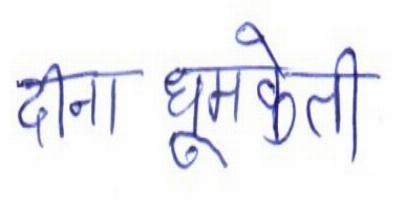 दीना धूमकेती